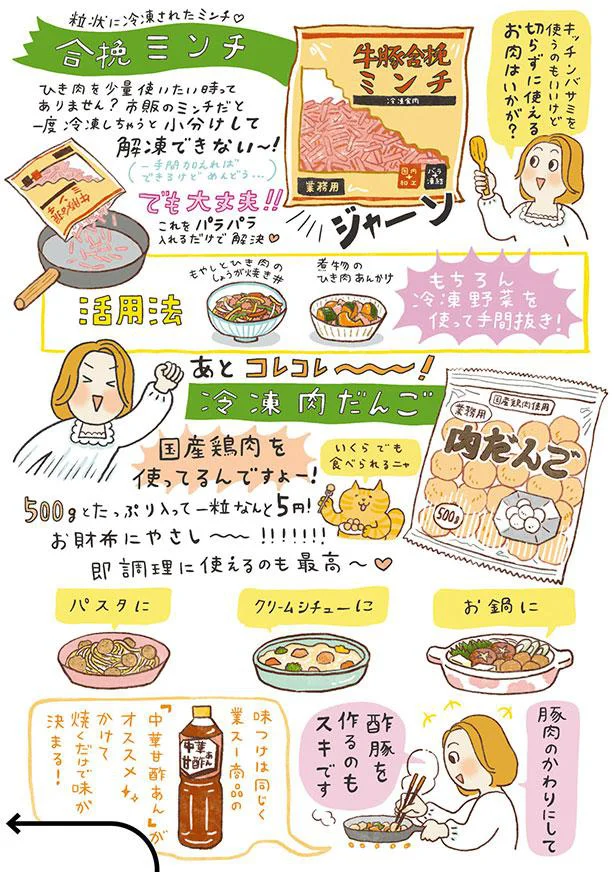 粒状に冷凍されたミンチ♡
合挽ミンチ
ひき肉を少量使いたい時って
ありません?市販のミンチだと
一度冷凍しちゃうと小分けして
解凍できない〜!
(一手間加えれば
できるけどめんどう…)
でも大丈夫!!
これをパラパラ
入れるだけで解決♥
牛豚合挽
ミンチ
牛豚合挽
ミンチ
冷凍食肉
業務用
国内
加工
バラ
凍結
ジャーン
キッチンバサミを
使うのもいいけど
切らずに使える
お肉はいかが?
活用法
もやしとひき肉の
しょうが焼き丼
煮物の
ひき肉あんかけ
もちろん
冷凍野菜を
使って手間抜き!
あとコレコレ〜〜!
冷凍肉だんご
国産鶏肉を
使ってるんですよー!
いくらでも
食べられるニャ
500gとたっぷり入って一粒なんと5円!
お財布にやさし〜〜!!!!!!!
即調理に使えるのも最高〜♥
国産鶏肉使用
業務用
肉だんご
500g
パスタに
クリームシチューに
お鍋に
豚肉のかわりにして
酢豚を
作るのも
スキです
味つけは同じく
業スー商品の
『中華甘酢あん』が
オススメ
かけて
焼くだけで味が
決まる!
中華
甘酢あん